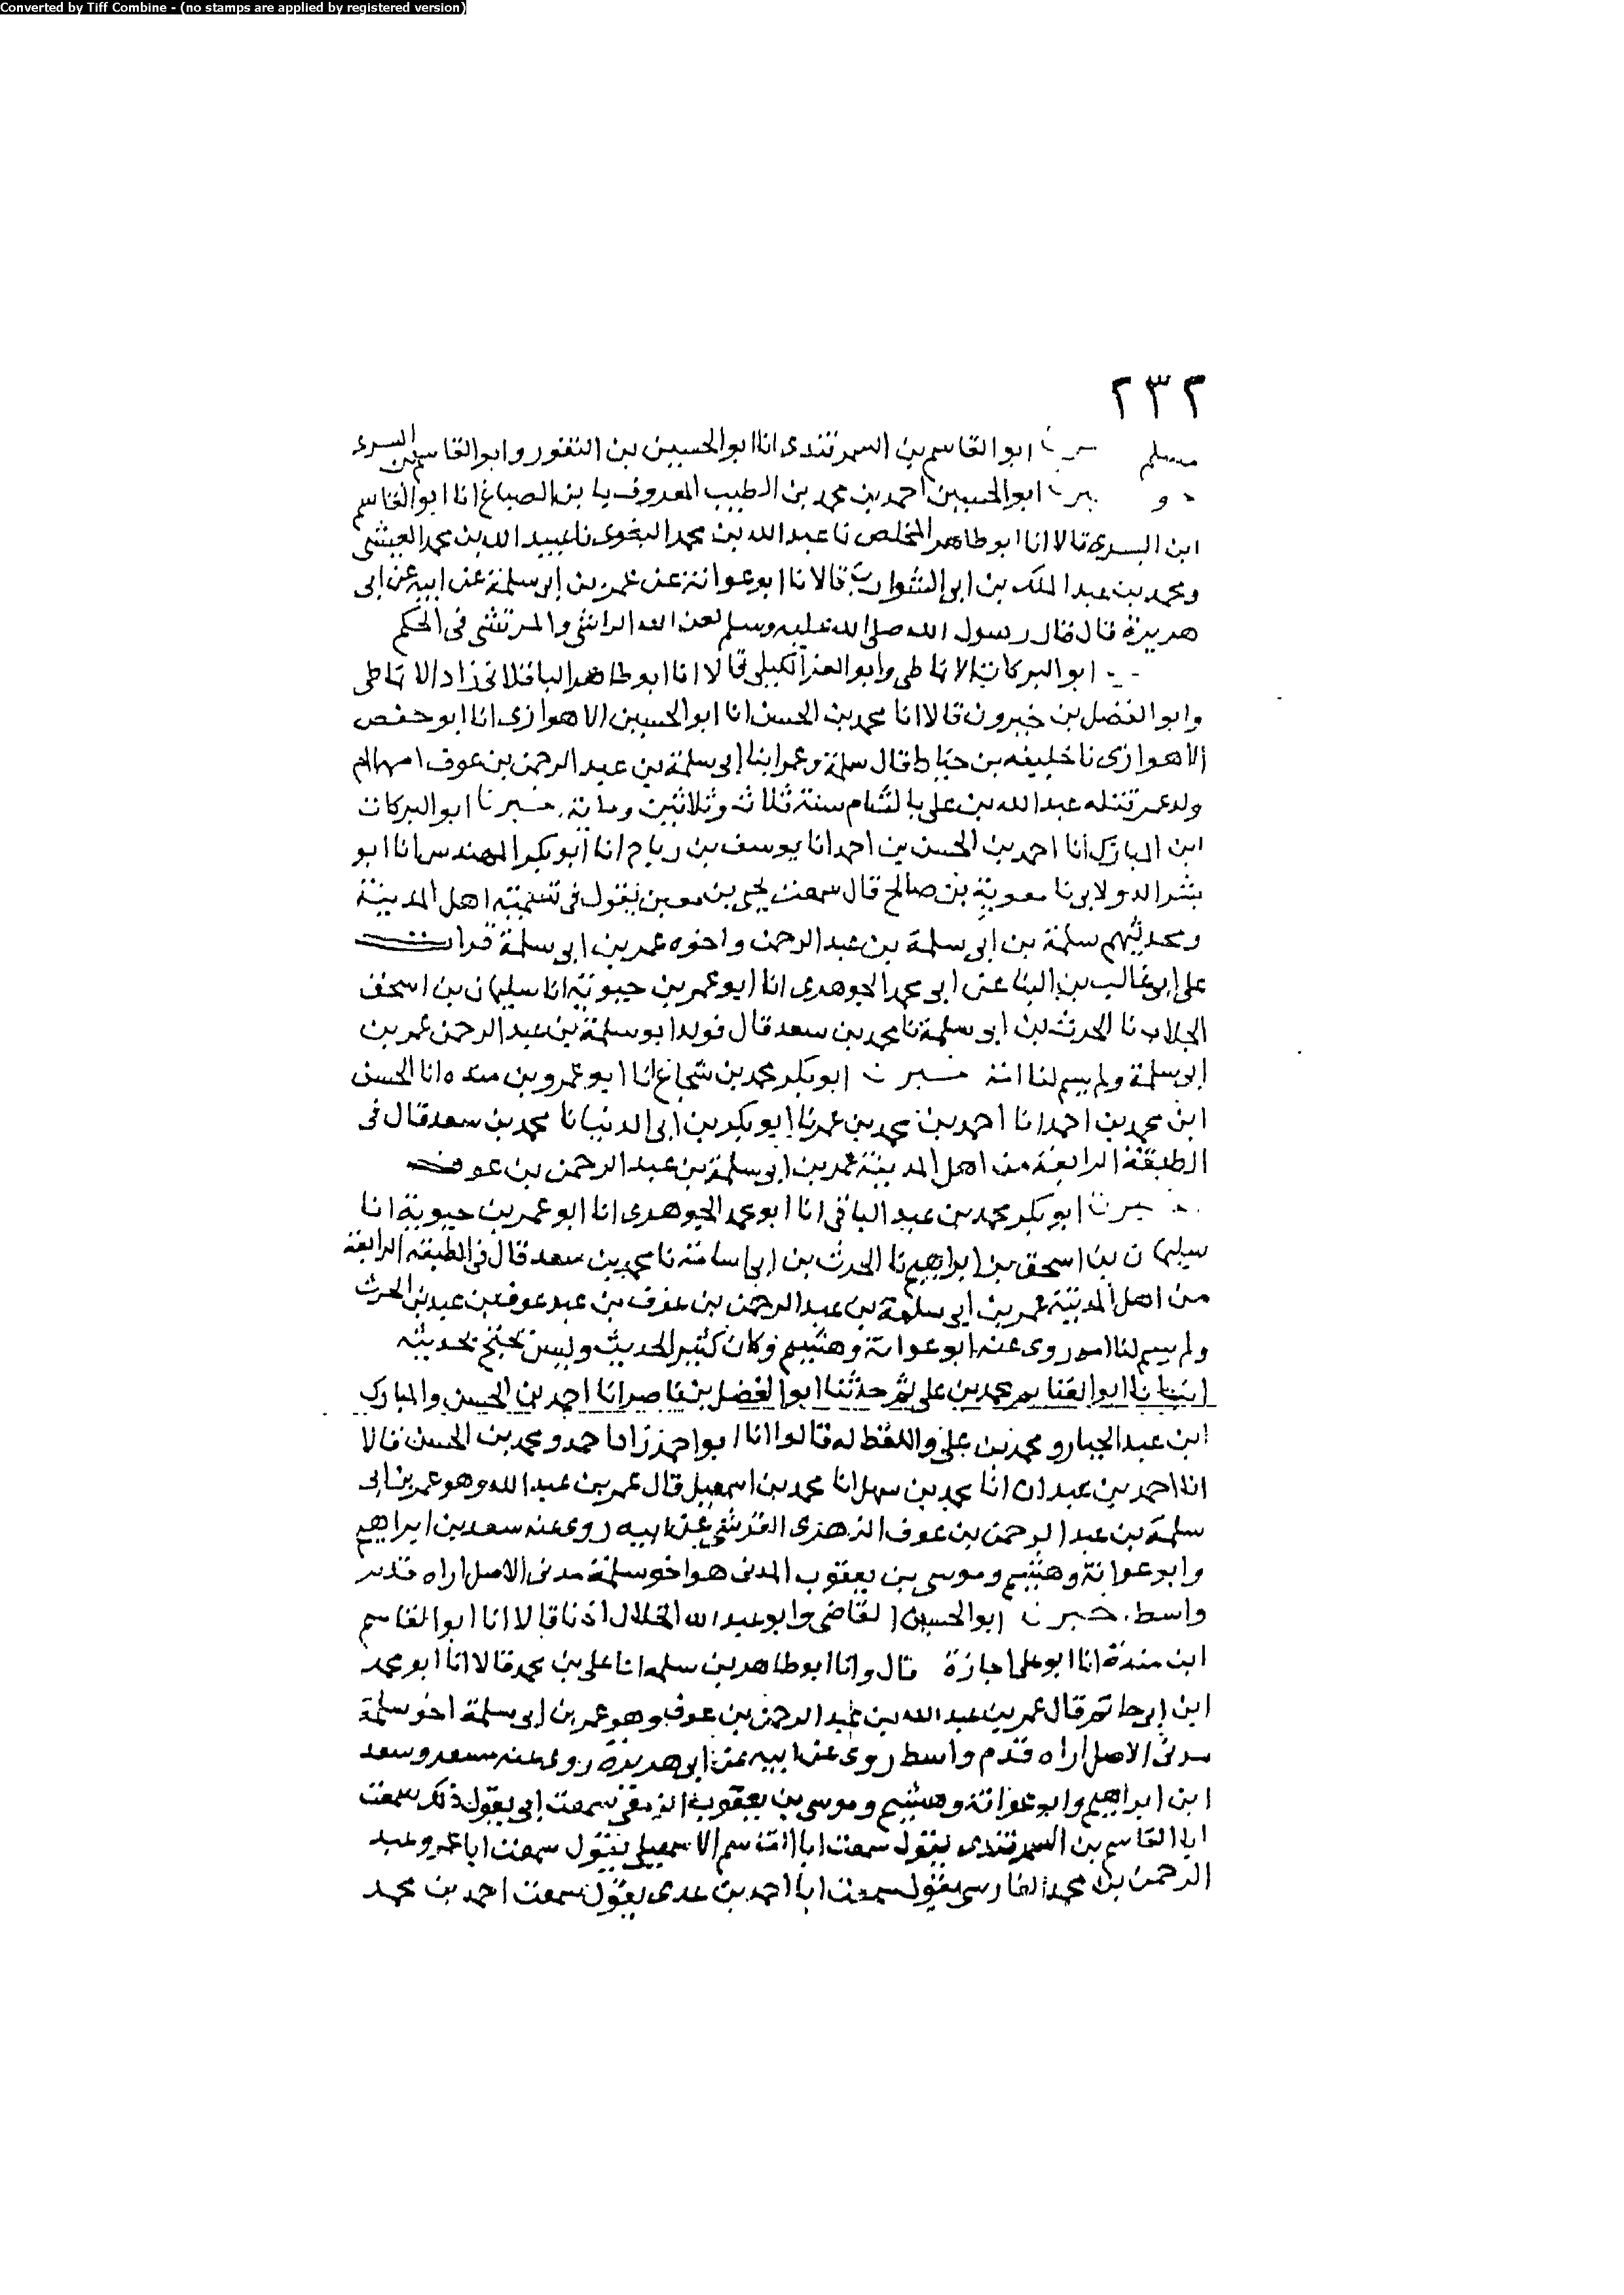 Converted by Tiff Combine - (no stamps are applied by registered version)
٢٣٢
مسلم ابو القاسم بن السمرقندى انا ابو الحسين بن النقور وابو القاسم بن البسرى
و ابو الحسين احمد بن محمد بن الطيب المعروف بابن الصباغ انا ابو القاسم
ابن البسرى قالا انا ابو طاهر المخلص نا عبد الله بن محمد البغوى نا عبيد الله بن محمد العيشى
ومحمد بن عبد الملك بن ابى الشوارب قالا نا ابو عوانة عن عمر بن ابى سلمة عن ابيه عن ابى
هريرة قال قال رسول الله صلى الله عليه وسلم لعن الله الراشى والمرتشى فى الحكم
ابو البركات الانماطى وابو العز الكيلى قالا انا ابو طاهر الباقلانى زاد الانماطى
وابو الفضل بن خيرون قالا انا محمد بن الحسن انا ابو الحسين الاهوازى انا ابو حفص
الاهوازى نا خليفه بن خياط قال سلمة وعمر ابنا ابى سلمة بن عبد الرحمن بن عوف امهما ام
ولد عمر قتله عبد الله بن على بالشام سنة ثلاث وثلاثين ومائة خبرنا ابو البركات
ابن المبارك انا احمد بن الحسن بن احمد انا يوسف بن رباح انا ابو بكر المهندس انا ابو
بشر الدولابى نا معوية بن صالح قال سمعت يحيى بن معين يقول فى تسمية اهل المدينة
ومحدثيهم سلمة بن ابى سلمة بن عبد الرحمن واخوه عمر بن ابى سلمة قرات
على ابى غالب بن البنا عن ابى محمد الجوهرى انا ابو عمر بن حيوية انا سليمان بن اسحق
الجلاب نا الحرث بن ابى سلمة نا محمد بن سعد قال فولد ابو سلمة بن عبد الرحمن عمر بن
ابى سلمة ولم يسم لنا امه خبرنا ابو بكر محمد بن شجاع انا ابو عمرو بن منده انا الحسن
ابن محمد بن احمد انا احمد بن محمد بن عمر نا ابو بكر بن ابى الدنيا نا محمد بن سعد قال فى
الطبقة الرابعة من اهل المدينة عمر بن ابى سلمة بن عبد الرحمن بن عوف
خبرنا ابو بكر محمد بن عبد الباقى انا ابو محمد الجوهرى انا ابو عمر بن حيوية انا
سليمان بن اسحق بن ابراهيم نا الحرث بن ابى اسامة نا محمد بن سعد قال فى الطبقة الرابعة
من اهل المدينة عمر بن ابى سلمة بن عبد الرحمن بن عوف بن عبد عوف بن عبد بن الحرث
ولم يسم لنا امه روى عنه ابو عوانة وهشيم وكان كثير الحديث وليس يحتج بحديثه
انبانا ابو الغنايم محمد بن على ثم حدثنا ابو الفضل بن ناصر انا احمد بن الحسن والمبارك
ابن عبد الجبار ومحمد بن على واللفظ له قالوا انا ابو احمد زاد احمد ومحمد بن الحسن قالا
انا احمد بن عبدان انا محمد بن سهل انا محمد بن اسمعيل قال عمر بن عبد الله وهو عمر بن ابى
سلمة بن عبد الرحمن بن عوف الزهرى القرشى عن ابيه روى عنه سعد بن ابراهيم
وابو عوانة وهشيم وموسى بن يعقوب المدنى هو اخو سلمة مدنى الاصل اراه قدم
واسط خبرنا ابو الحسين القاضى وابو عبد الله الخلال اذنا قالا انا ابو القاسم
ابن مندة انا ابو على اجازة قال وانا ابو طاهر بن سلمه انا على بن محمد قالا انا ابو محمد
ابن ابى حاتم قال عمر بن عبد الله بن عبد الرحمن بن عوف وهو عمر بن ابى سلمة اخو سلمة
مدنى الاصل اراه قدم واسط روى عن ابيه عن ابى هريرة روى عنه مسعر وسعد
ابن ابراهيم وابو عوانة وهشيم وموسى بن يعقوب الزمعى سمعت ابى يقول ذلك سمعت
ابا القاسم بن السمرقندى يقول سمعت ابا القاسم الاسمعيلى يقول سمعت ابا عمرو عبد
الرحمن بن محمد الفارسى يقول سمعت ابا احمد بن عدى يقول سمعت احمد بن محمد